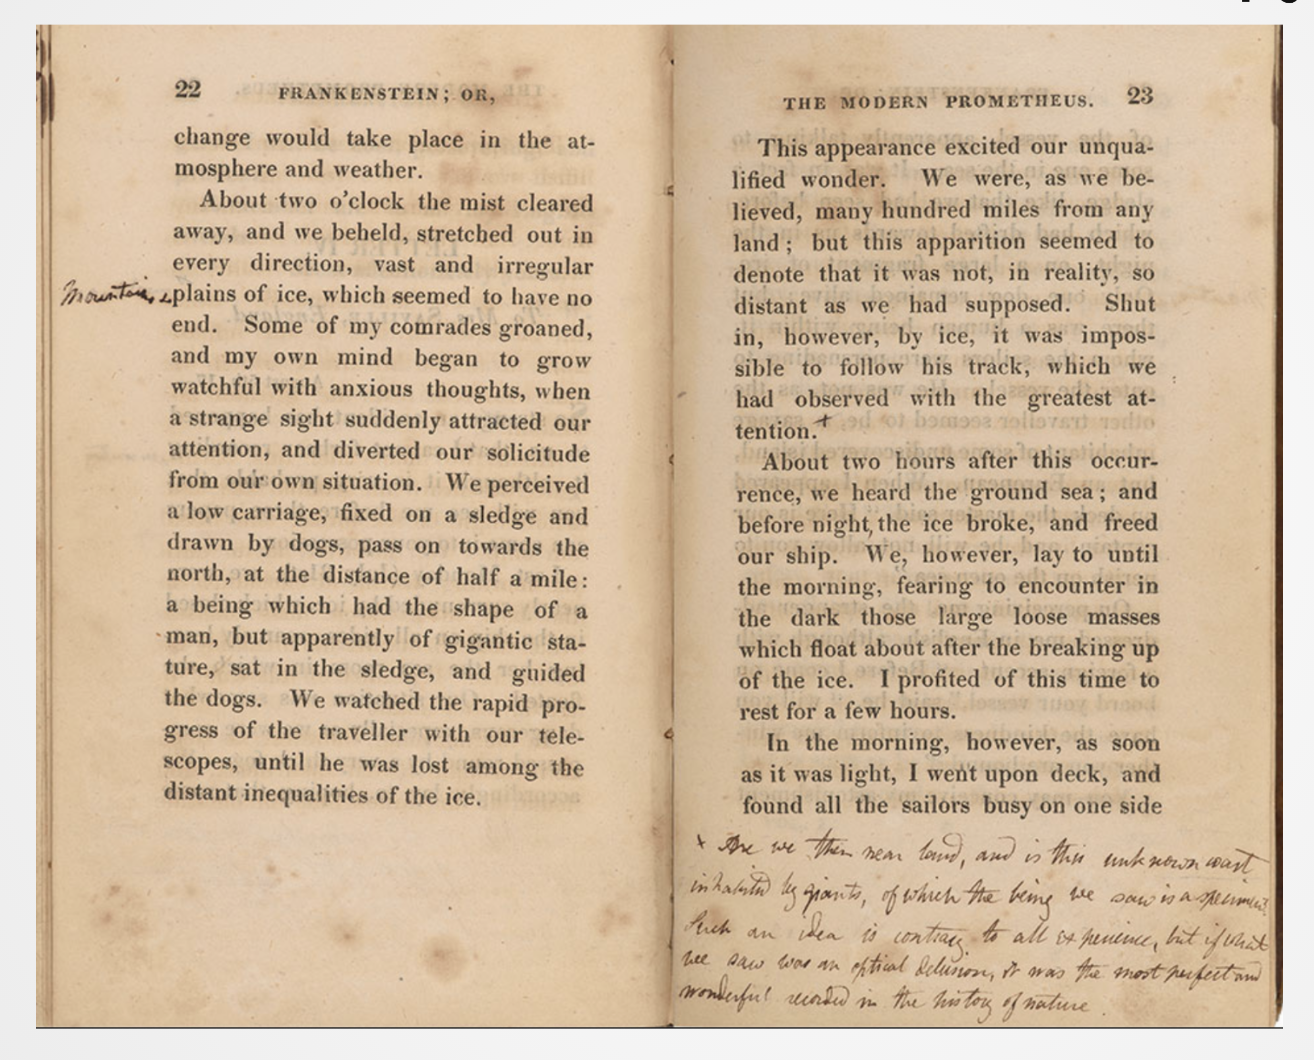 22
FRANKENSTEIN; OR,
change would take place in the at-
mosphere and weather.
About two o'clock the mist cleared
away, and we beheld, stretched out in
every direction, vast and irregular
plains of ice, which seemed to have no
end. Some of my comrades groaned,
and my own mind began to grow
watchful with anxious thoughts, when
a strange sight suddenly attracted our
attention, and diverted our solicitude
from our own situation. We perceived
a low carriage, fixed on a sledge and
drawn by dogs, pass on towards the
north, at the distance of half a mile:
a being which had the shape of a
man, but apparently of gigantic sta-
ture, sat in the sledge, and guided
the dogs. We watched the rapid pro-
gress of the traveller with our tele-
scopes, until he was lost among the
distant inequalities of the ice.
THE MODERN PROMETHEUS. 23
This appearance excited our unqua-
lified wonder. We were, as we be-
lieved, many hundred miles from any
land; but this apparition seemed to
denote that it was not, in reality, so
distant as we had supposed. Shut
in, however, by ice, it was impos-
sible to follow his track, which we
had observed with the greatest at-
tention.+
About two hours after this occur-
rence, we heard the ground sea; and
before night, the ice broke, and freed
our ship. We, however, lay to until
the morning, fearing to encounter in
the dark those large loose masses
which float about after the breaking up
of the ice. I profited of this time to
rest for a few hours.
In the morning, however, as soon
as it was light, I went upon deck, and
found all the sailors busy on one side
+ Are we then near land, and is this unknown wast
inhabited by giants, of which the being we saw is a specimen?
Such an idea is contrary to all experience, but if what
we saw was an optical delusion, it was the most perfect and
wonderful recorded in the history of nature.